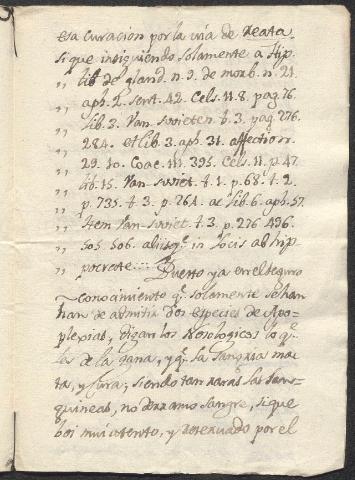 esa curacion por la via de Reata=
sigue insiguiendo solamente a Hip.
,, lib de gland. n. 9. de morb. n. 21.
,, aph. 2. sent. 42. Cels. 11. 8. pag. 76
,, lib. 3. Van-Swieten. t. 3. pag. 276.
,, 284. et lib. 3. aph. 31. affectiorr.
,, 29. 30. Coac. 111. 395. Cels. 11. p. 47.
,, lib. 15. Van-swiet. t. 1. p. 63. t. 2.
,, p. 735. t. 3. p. 261. ac lib. 6. aph. 57.
,, Item Van-swiet. t. 3. p. 276. 496.
,, 505. 506. aliisq. in locis ab Hip
,, pocrate...
Puesto ya en el seguro
conocimiento q. solamente se han
de admitir dos especies de Apo=
plexias, digan los Nosologicos lo q.
les dé la gana, y q. la sangria ma=
ta, y cura; siendo tan raras las san=
guineas, no derramo sangre, si que
boi mui atento, y por el